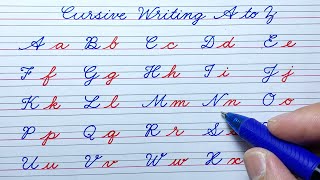 Cursive Writing A to Z
A a B b C c D d E e
F f G g H h I i J j
K k L l M m N n O o
P p Q q R r S
U u V v W w X x